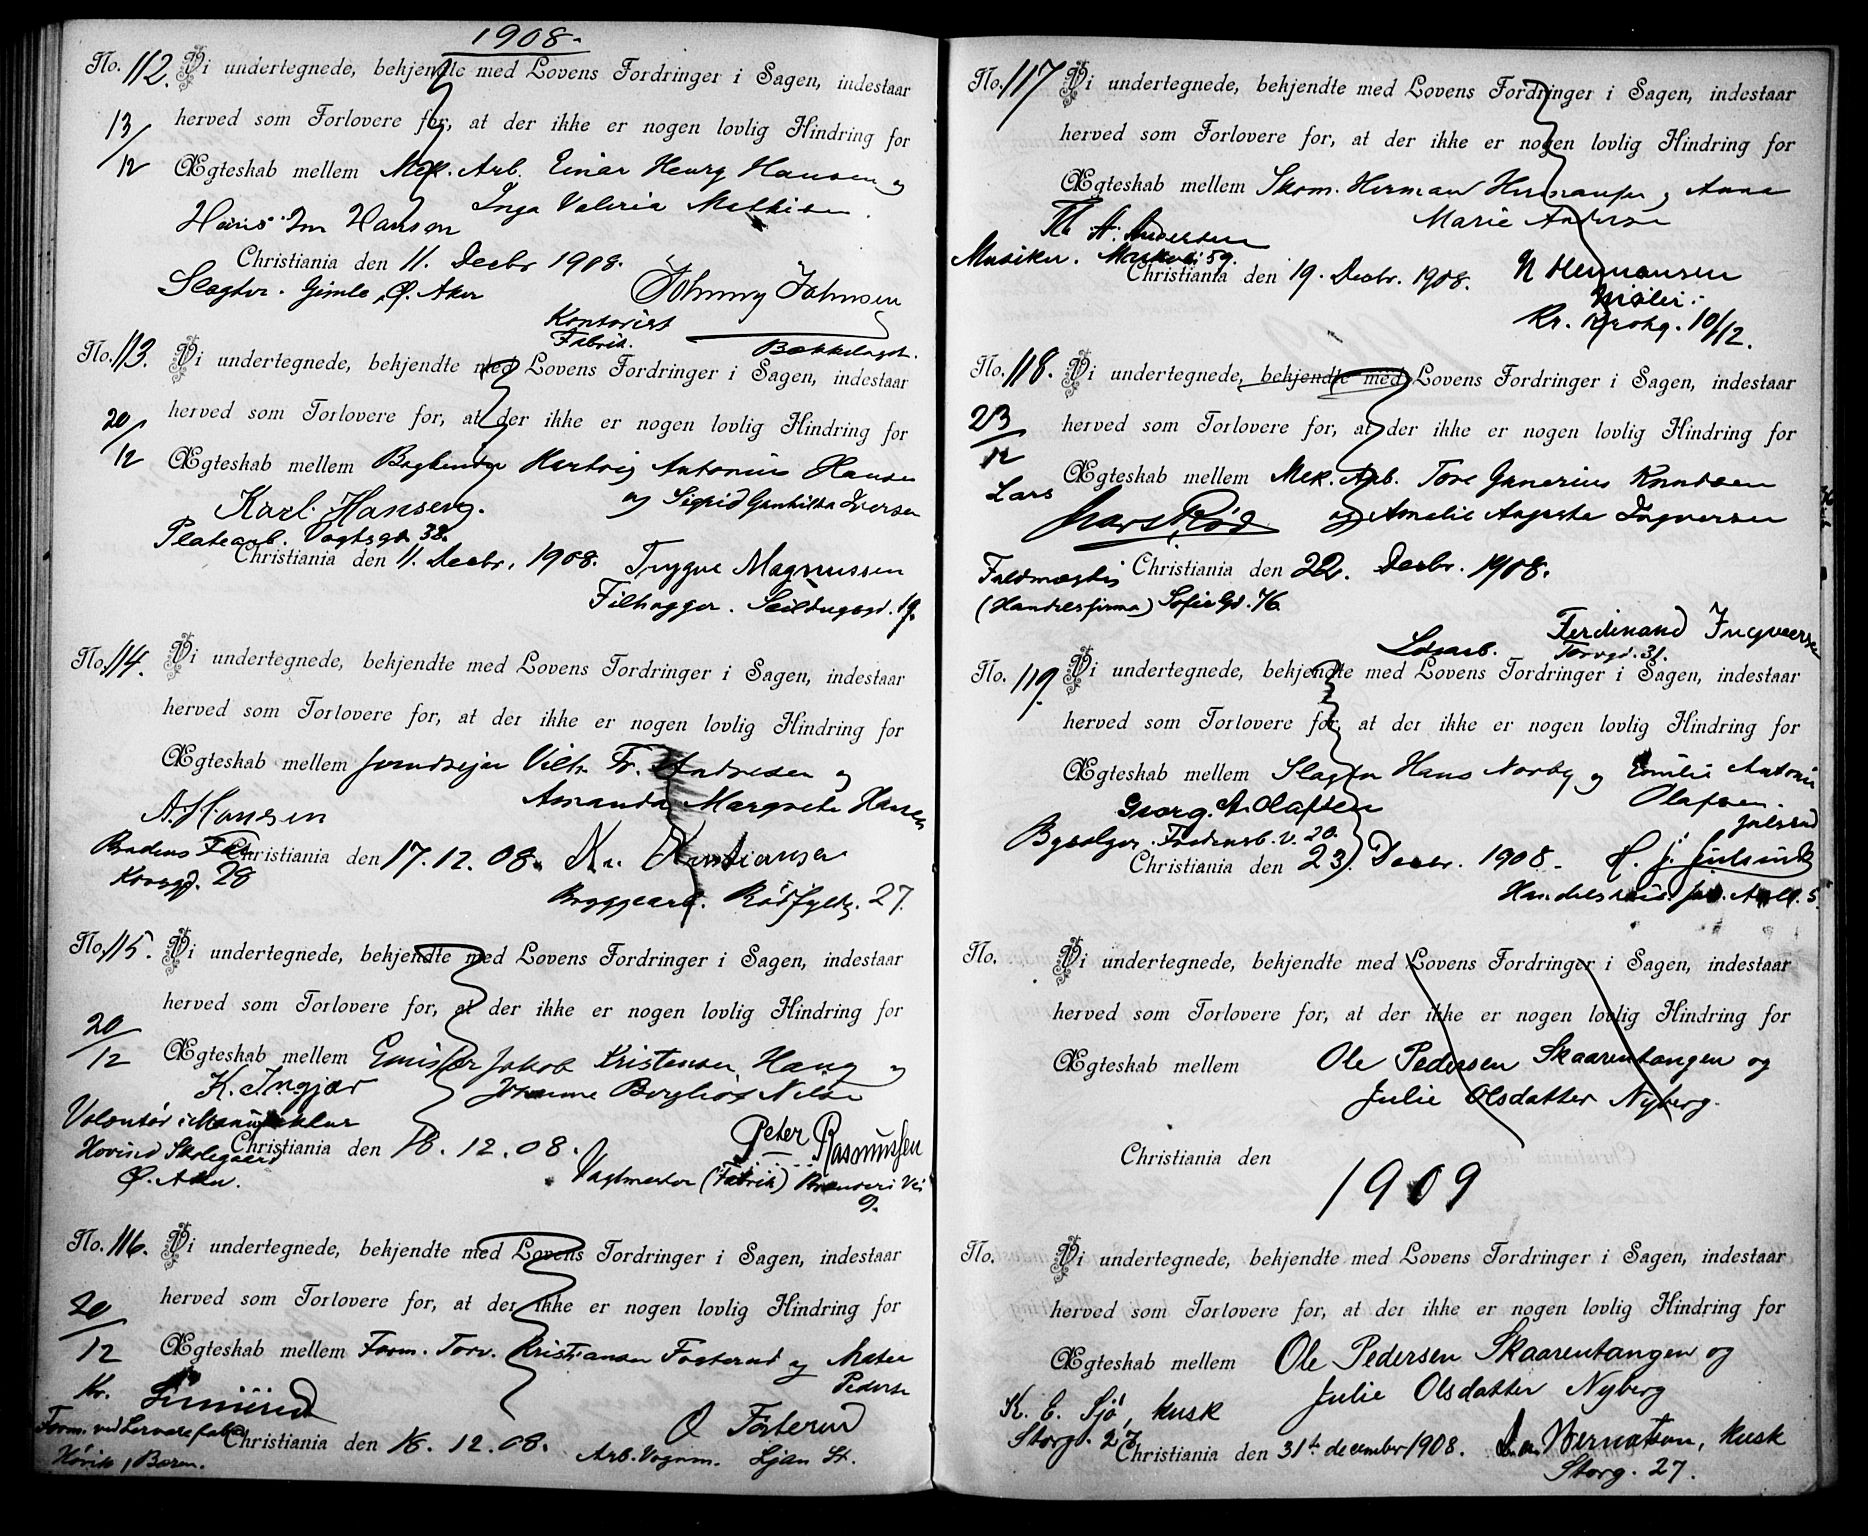 1908.
No. 112. Vi undertegnede, bekjendte med Lovens Fordringer i Sagen, indestaar
13/12 herved som Forlovere for, at der ikke er nogen lovlig Hindring for
Ægteskab mellem Mek. Arb. Einar Henry Hansen og
Inga Valeria Mathisen.
Hans Jm Hansen
Christiania den 11. Decbr 1908.
Slagter. Gimle, Ø. Aker
Johnny Johnsen
Kontorist
Fabrik. Bækkelaget.
No. 113. Vi undertegnede, bekjendte med Lovens Fordringer i Sagen, indestaar
20/12 herved som Forlovere for, at der ikke er nogen lovlig Hindring for
Ægteskab mellem Hartvig Antonius Hansen
og Sigrid Gunhilda Iversen
Karl Hansen.
Platearb. Vogtsgd. 38.
Christiania den 11. Decbr. 1908.
Trygve Magnussen
Filhugger. Seildugsgd. 19.
No. 114. Vi undertegnede, bekjendte med Lovens Fordringer i Sagen, indestaar
herved som Forlovere for, at der ikke er nogen lovlig Hindring for
Ægteskab mellem Vilh. Fr. Andresen og
Amanda Margrete Hansen
A. Hansen
Christiania den 17.12.08.
Korsgd. 28
Kr. Kristiansen
Byggearb. Rödfyldg. 27.
No. 115. Vi undertegnede, bekjendte med Lovens Fordringer i Sagen, indestaar
herved som Forlovere for, at der ikke er nogen lovlig Hindring for
20/12 Ægteskab mellem Emissær Jakob Kristensen Haug og
Johanne Bergliot Nilsen
K. Ingjær
Volontør i Manufaktur
Hovind Skolegaard
Ø. Aker.
Christiania den 18.12.08.
Peter Rasmussen
Vagtmester (Fabrik) Brenneri Vei
9.
No. 116. Vi undertegnede, bekjendte med Lovens Fordringer i Sagen, indestaar
herved som Forlovere for, at der ikke er nogen lovlig Hindring for
20/12 Ægteskab mellem Form. Torv. Kristiansen Fosterud og
Pederse
Kr.
Form. ved Lervarefabr.
Christiania den 18.12.08.
Høvik, Bærum.
O Fosterud
Arb. Vognm. Ljan St.
No. 117 Vi undertegnede, bekjendte med Lovens Fordringer i Sagen, indestaar
herved som Forlovere for, at der ikke er nogen lovlig Hindring for
Ægteskab mellem Skom. Herman Hermansen og Anna
Marie Andersen
Th. A. Andersen
Musiker.
Christiania den 19. Decbr. 1908.
N Hermansen
Kr. Krohg. 10/12.
No. 118. Vi undertegnede, bekjendte med Lovens Fordringer i Sagen, indestaar
23/12 herved som Forlovere for, at der ikke er nogen lovlig Hindring for
Ægteskab mellem Mek. Arb. Tore Gunerius Knudsen
og Amalie Augusta Ingversen
Lars
Lars Rød
Christiania den 22. Decbr. 1908.
Fuldmægtig
(Handelsfirma) Sofie Gd. 76
Ferdinand Ingversen
Torvgd. 31.
No. 119. Vi undertegnede, bekjendte med Lovens Fordringer i Sagen, indestaar
herved som Forlovere for, at der ikke er nogen lovlig Hindring for
Ægteskab mellem Slagter Hans Norby og Emilie Antonie
Olafsen.
Georg. A. Olafsen
20.
Christiania den 23. Decbr. 1908.
No. Vi undertegnede, bekjendte med Lovens Fordringer i Sagen, indestaar
herved som Forlovere for, at der ikke er nogen lovlig Hindring for
Ægteskab mellem Ole Pedersen Skaarentangen og
Julie Olsdatter Nyberg.
Christiania den
1909
No. Vi undertegnede, bekjendte med Lovens Fordringer i Sagen, indestaar
herved som Forlovere for, at der ikke er nogen lovlig Hindring for
Ægteskab mellem Ole Pedersen Skaarentangen og
Julie Olsdatter Nyberg
K. E. Sjö, kusk
Storg. 27
Christiania den 31te december 1908.
Bernatson, kusk
Storg. 27.